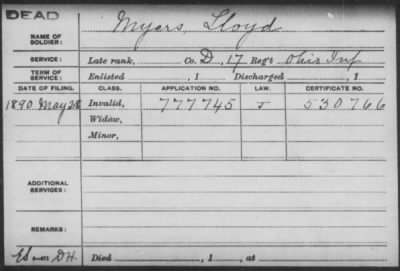 DEAD
NAME OF SOLDIER: Myers, Lloyd
SERVICE: Late rank, Co. D, 17 Reg't Ohio Inf
TERM OF SERVICE: Enlisted , 1 Discharged , 1
DATE OF FILING. CLASS. APPLICATION NO. LAW. CERTIFICATE NO.
1890 May 28 Invalid, 777745 530766
Widow,
Minor,
ADDITIONAL SERVICES:
REMARKS:
Died , 1 , at